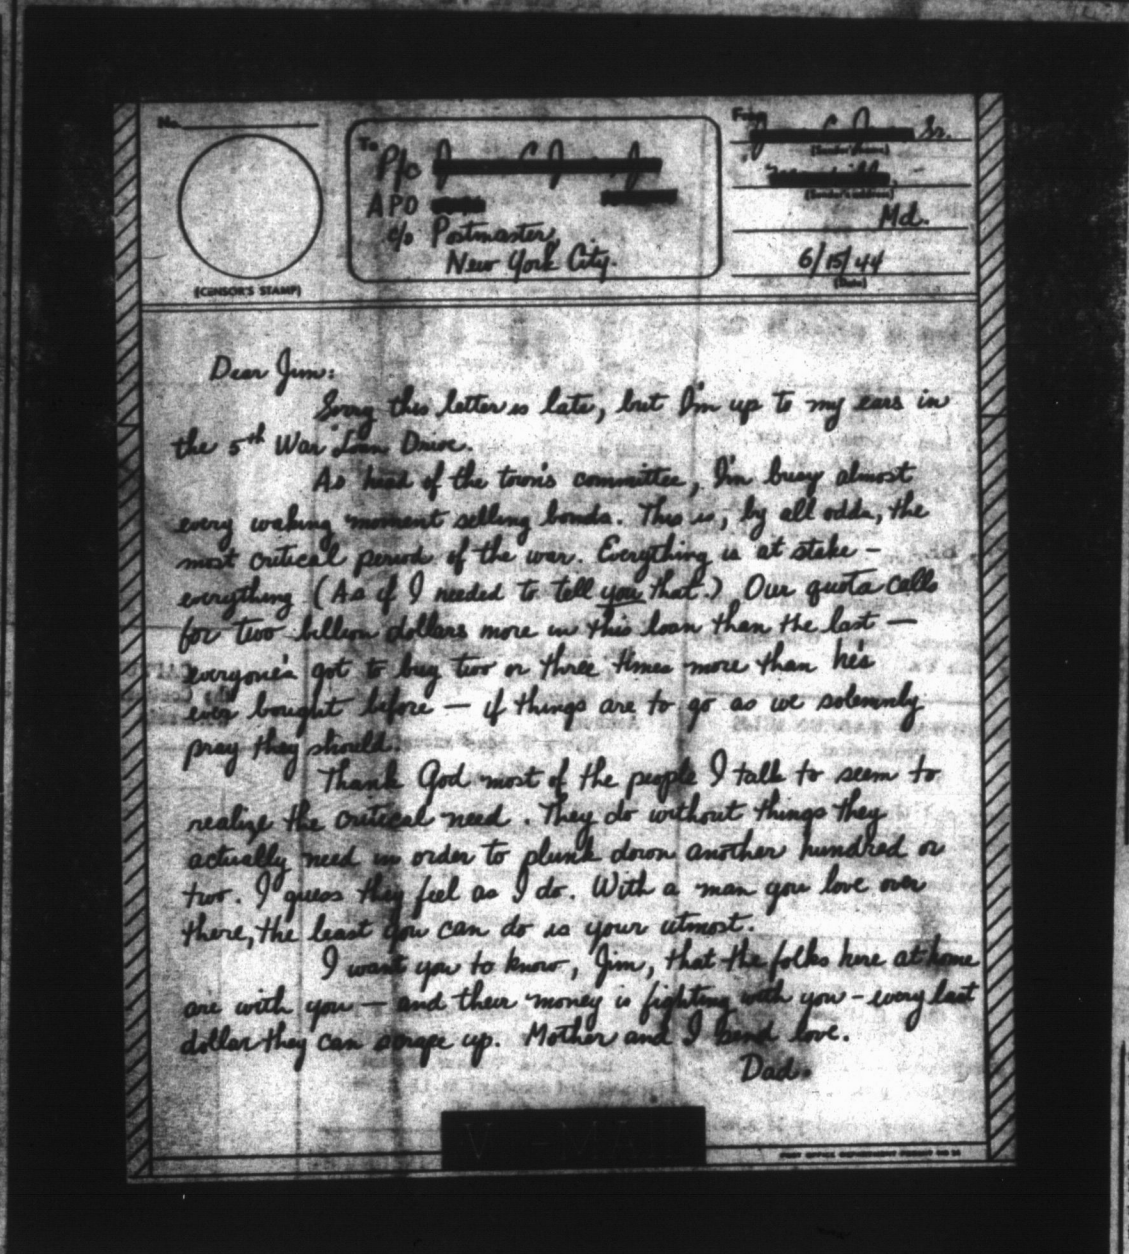 No.
(CENSOR'S STAMP)
To
Pfc
APO
c/o Postmaster,
New York City.
From
Sr.
(Sender's name)
(Sender's address)
Md.
6/15/44
(Date)
Dear Jim:
Sorry this letter is late, but I'm up to my ears in
the 5th War Loan Drive.
As head of the town's committee, I'm busy almost
every waking moment selling bonds. This is, by all odds, the
most critical period of the war. Everything is at stake —
everything (As if I needed to tell you that.) Our quota calls
for two billion dollars more in this loan than the last —
everyone's got to buy two or three times more than he's
ever bought before — if things are to go as we solemnly
pray they should.
Thank God most of the people I talk to seem to
realize the critical need. They do without things they
actually need in order to plunk down another hundred or
two. I guess they feel as I do. With a man you love over
there, the least you can do is your utmost.
I want you to know, Jim, that the folks here at home
are with you — and their money is fighting with you – every last
dollar they can scrape up. Mother and I send love.
Dad.
V···—MAIL